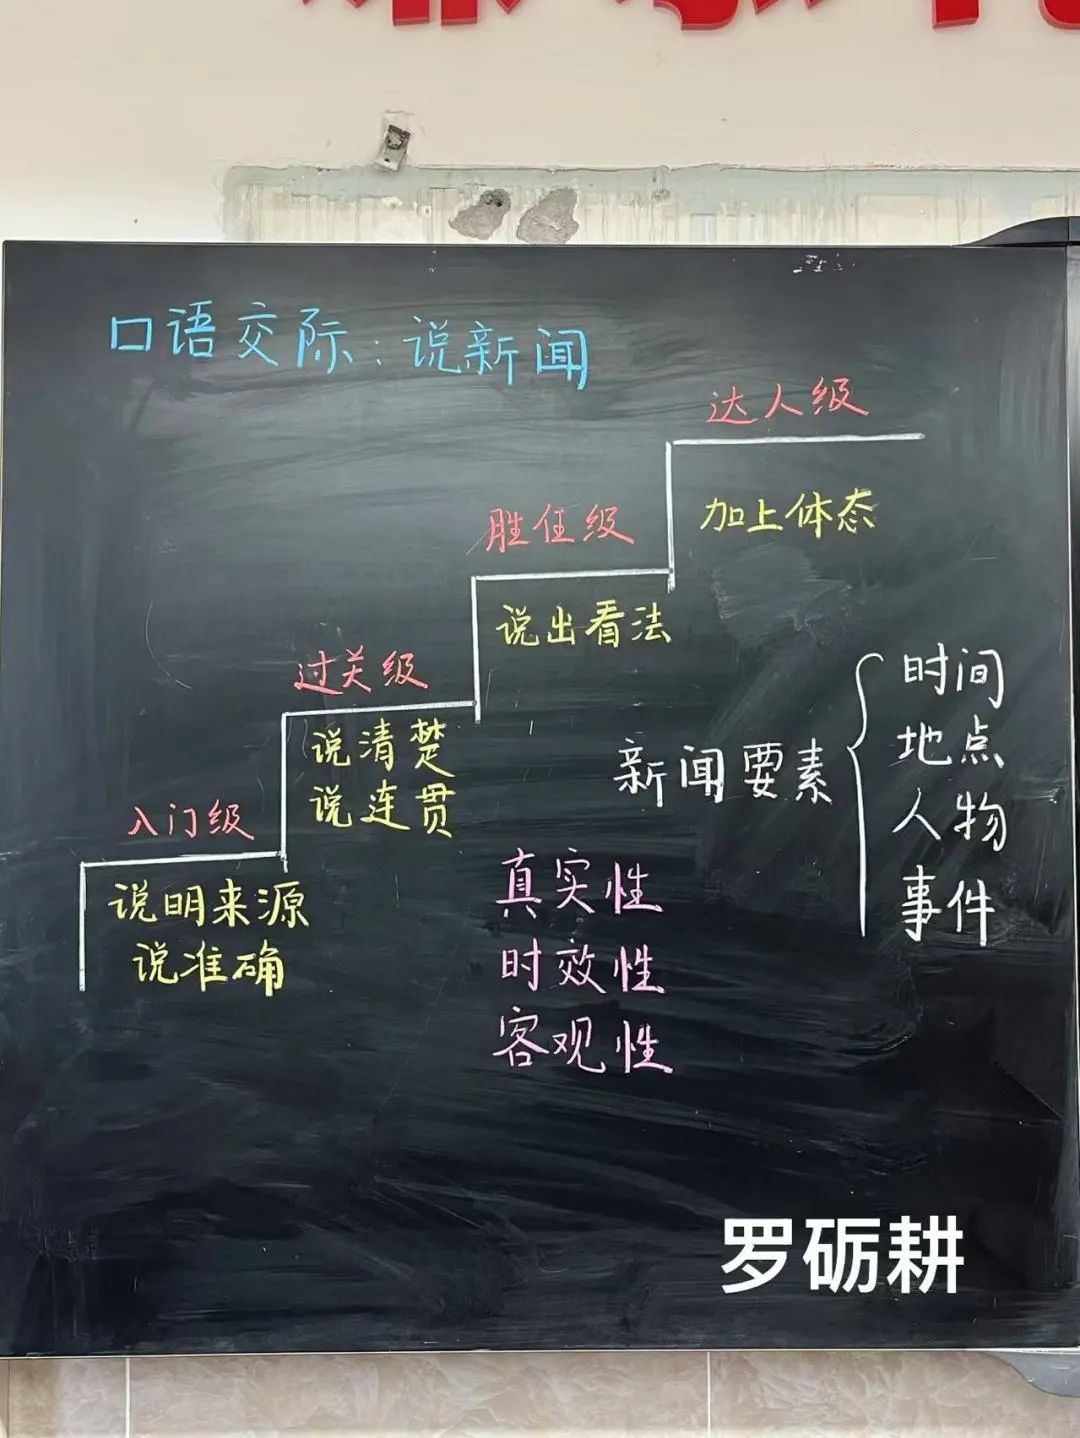 口语交际:说新闻
达人级
加上体态
胜任级
说出看法
过关级
说清楚
说连贯
入门级
说明来源
说准确
新闻要素
时间
地点
人物
事件
真实性
时效性
客观性
罗砺耕